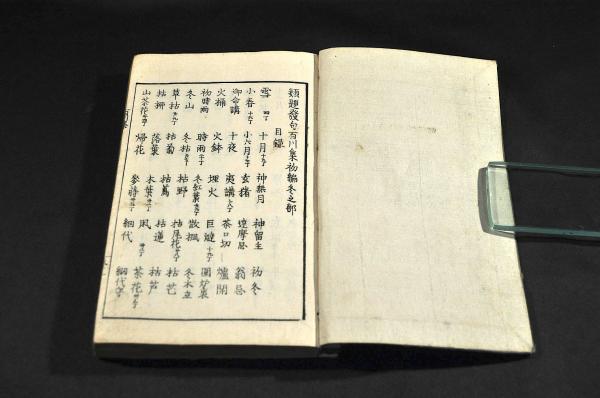 類題發句百川集初編冬之部
目録
雪 四丁 十月 神無月 神留主 初冬
小春 十六丁 小六月 玄猪 達摩忌 翁忌
御命講 十夜 夷講 十八丁 茶口切 爐開
火桶 火鉢 埋火 巨燵 十九丁 圍炉裏
初時雨 時雨 冬紅葉 散楓 冬木立
冬山 冬枯 枯野 枯尾花 枯芒
草枯 枯菊 枯蔦 枯蓮 枯芦
落葉 木葉 凩 茶花
山茶花 帰花 麥蒔 網代 網代守